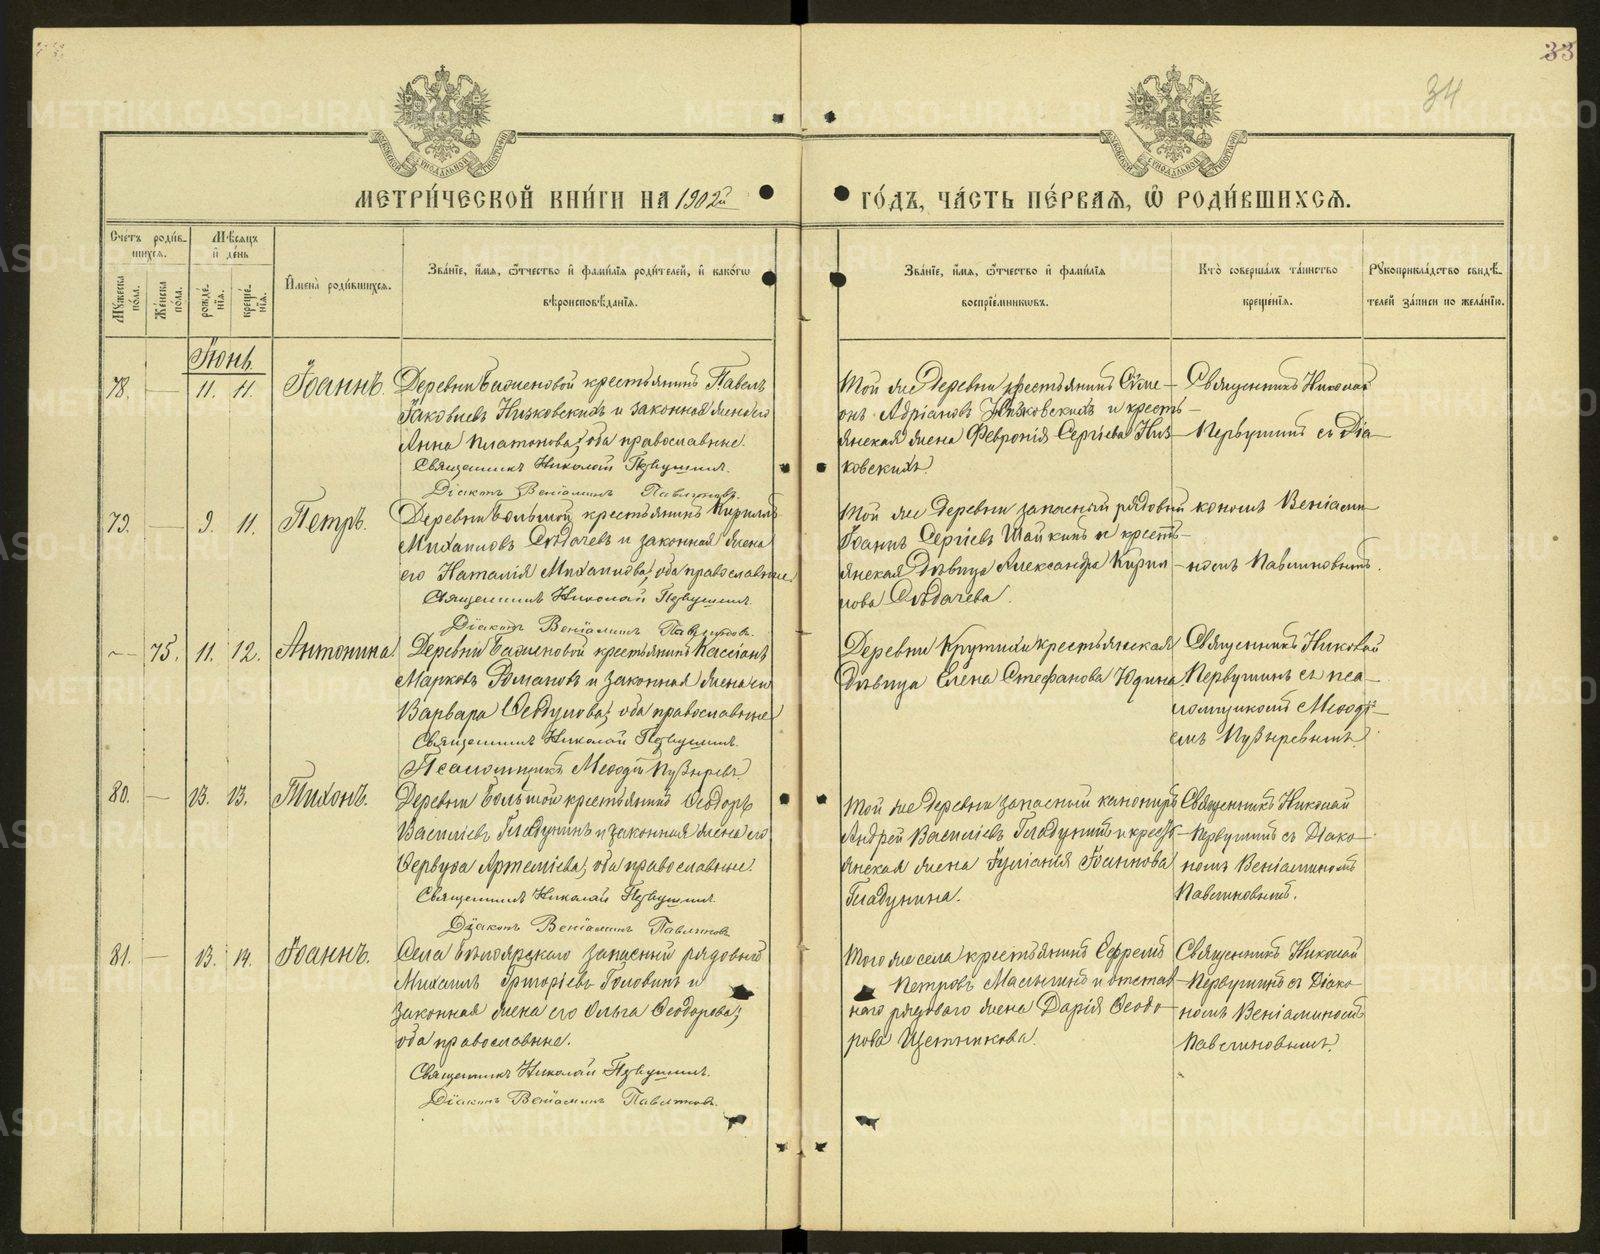 33
34
МОСКОВСКОЙ СѴНОДАЛЬНОЙ ТИПОГРАФІИ
МОСКОВСКОЙ СѴНОДАЛЬНОЙ ТИПОГРАФІИ
МЕТРИ́ЧЕСКОЙ КНИ́ГИ НА 1902й
ГО́ДЪ, ЧА́СТЬ ПЕ́РВАЯ, Ѡ҆ РОДИ́ВШИХСЯ.
Счетъ роди́в-
шихся.
Мѣ́сяцъ
и҆ де́нь
Мꙋ́жеска по́ла.
Же́нска по́ла.
рожде́-нїя.
креще́-нїя.
И҆мена̀ роди́вшихся.
Зва́нїе, и҆́мя, ѻ҆́тчество и҆ фами́лїя роди́телей, и҆ како́гѡ
вѣроисповѣ́данїя.
Зва́нїе, и҆́мя, ѻ҆́тчество и҆ фами́лїя
воспрїе́мникѡвъ.
Кто̀ соверша́лъ та́инство
креще́нїя.
Рꙋкоприкла́дство свидѣ́-
телей за́писи по жела́нїю.
Іюнь
78. — 11. 11. Іоаннъ.
Деревни Баженовой крестьянинъ Павелъ
Іаковлевъ Низковскихъ и законная жена его
Анна Платонова; оба православные.
Священникъ Николай Первушинъ.
Діаконъ Веніаминъ Павлиновъ.
Той же деревни крестьянинъ Сѵме-
онъ Адріановъ Низковскихъ и кресть-
янская жена Февронія Сергіева Низ-
ковскихъ.
Священникъ Николай
Первушинъ съ Діа-
кономъ Веніами-
номъ Павлиновымъ.
79. — 9. 11. Петръ.
Деревни Большой крестьянинъ Кириллъ
Михаиловъ Сѣдачевъ и законная жена
его Наталія Михаилова; оба православные
Священникъ Николай Первушинъ.
Діаконъ Веніаминъ Павлиновъ.
Той же деревни запасный рядовый
Іоаннъ Сергіевъ Шайкинъ и кресть-
янская дѣвица Александра Кирил-
лова Сѣдачева.
— 75. 11. 12. Антонина.
Деревни Баженовой крестьянинъ Кассіанъ
Марковъ Романовъ и законная жена его
Варвара Ѳеодулова; оба православные
Священникъ Николай Первушинъ.
Псаломщикъ Меѳодій Пузыревъ.
Деревни Крутихи крестьянская
дѣвица Елена Стефанова Юдина.
Священникъ Николай
Первушинъ съ пса-
ломщикомъ Меѳоді-
емъ Пузыревымъ.
80. — 13. 13. Тихонъ.
Деревни Большой крестьянинъ Ѳеодоръ
Василіевъ Гладунинъ и законная жена его
Ѳервуѳа Артеміева; оба православные.
Священникъ Николай Первушинъ.
Діаконъ Веніаминъ Павлиновъ
Той же деревни запасный канониръ
Андрей Василіевъ Гладунинъ и кресть-
янская жена Іуліанія Іоаннова
Гладунина.
Священникъ Николай
Первушинъ съ Діако-
номъ Веніаминомъ
Павлиновымъ.
81. — 13. 14. Іоаннъ.
Села запасный рядовый
Михаилъ Григоріевъ Головинъ и
законная жена его Ольга Ѳеодорова;
оба православные.
Священникъ Николай Первушинъ.
Діаконъ Веніаминъ Павлиновъ.
Того же села крестьянинъ Ефремъ
Петровъ Малыгинъ и отстав-
наго рядоваго жена Дарія Ѳеодо-
рова Щетникова.
Священникъ Николай
Первушинъ съ Діако-
номъ Веніаминомъ
Павлиновымъ.
METRIKI.GASO-URAL.RU